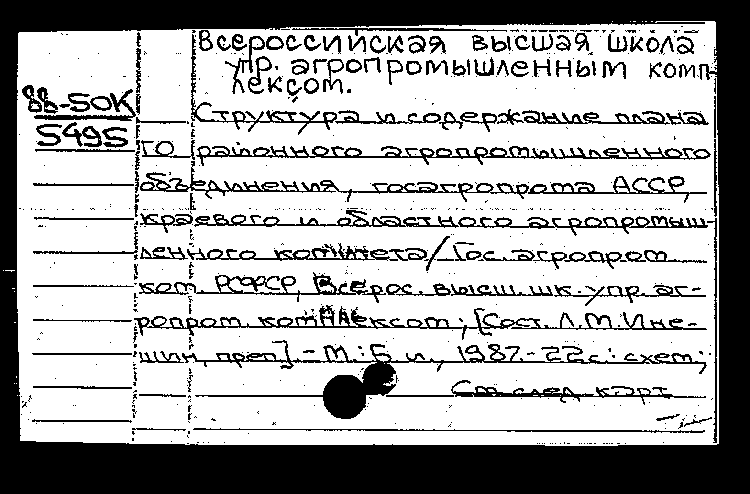 Всероссийская высшая школа
упр. агропромышленным комп-
лексом.
88-50К
5495
Структура и содержание плана
ГО районного агропромышленного
объединения, госагропрома АССР,
краевого и областного агропромыш-
ленного комитета/ Гос. агропром.
ком. РСФСР, Всерос. высш. шк. упр. аг-
ропром. комплексом; [Сост. Л.М.Ине-
шин, преп]. - М.: Б. и., 1987. - 22с.: схем;
См. след. карт